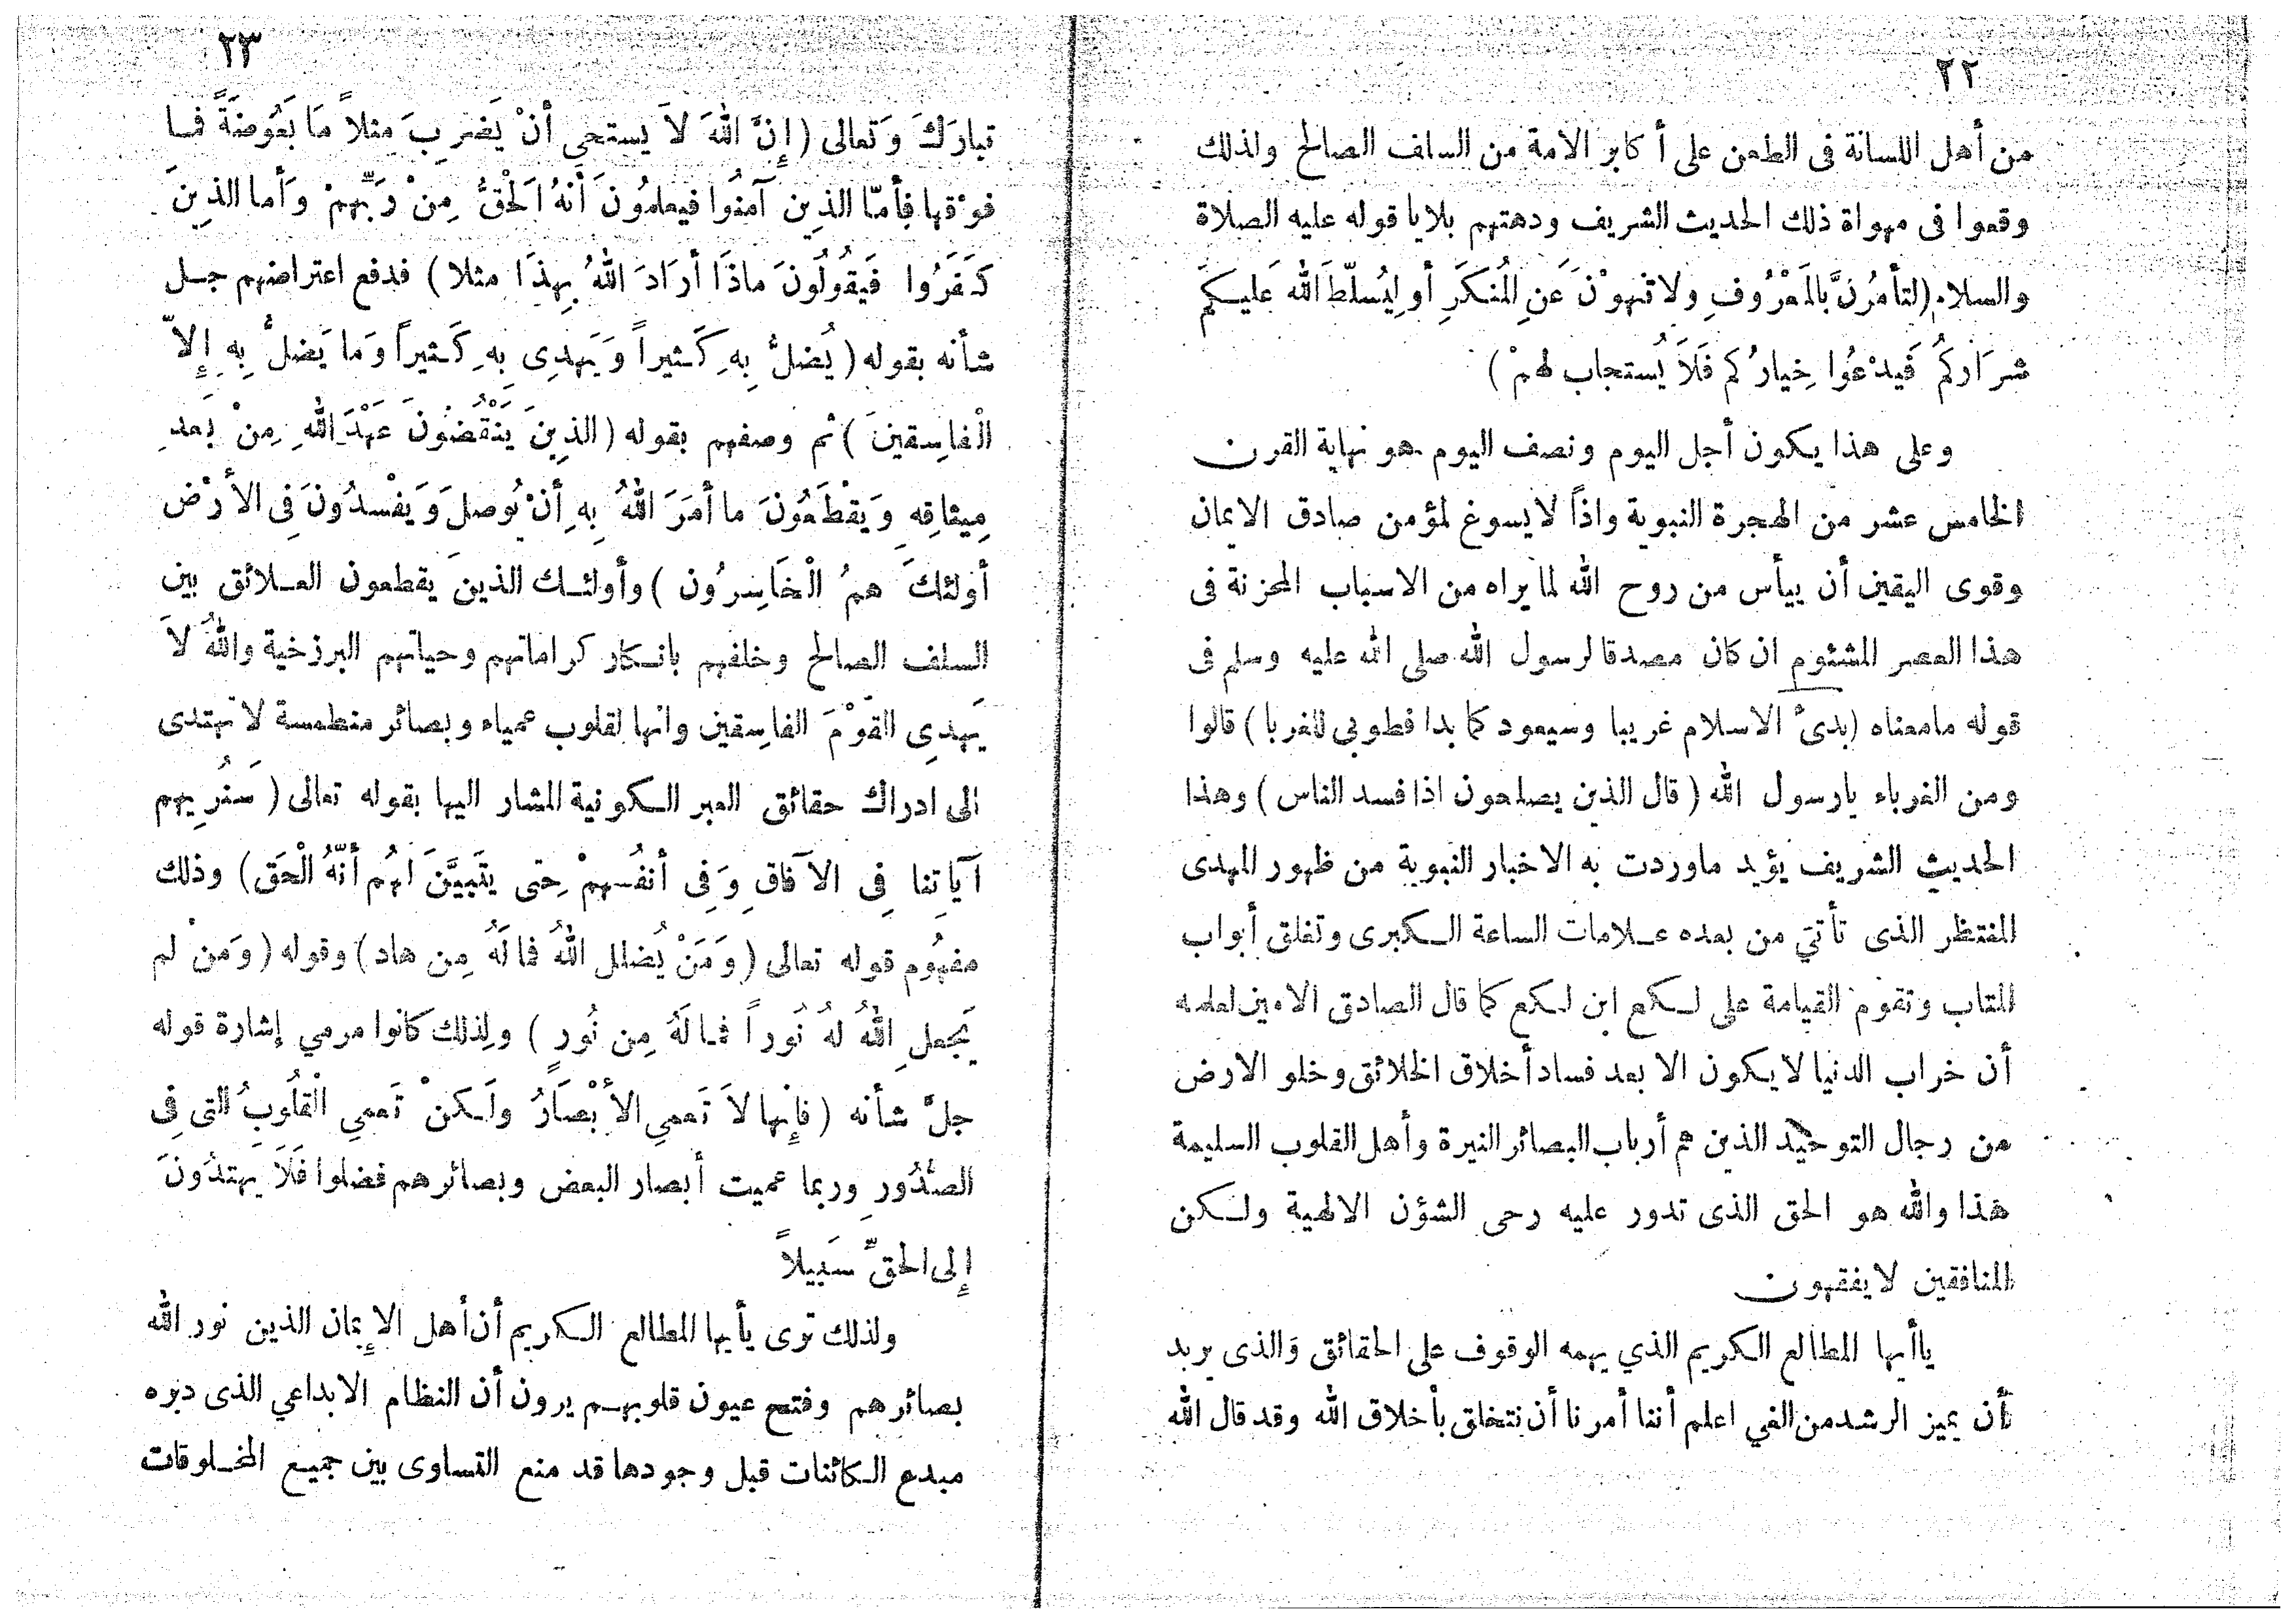 ٢٢
من أهل اللسانة فى الطعن على أكابر الامة من السلف الصالح ولذلك
وقعوا فى مهواة ذلك الحديث الشريف ودهتهم بلايا قوله عليه الصلاة
والسلام (لتأمُرُنَّ بالمَعْرُوفِ ولا تنهوْنَ عَنِ المُنكَرِ أو ليُسلّطَ اللهَ عَليكم
شرَاركُم فَيدْعُوا خِيارُكم فَلاَ يُستجاب لهمْ)
وعلى هذا يكون أجل اليوم ونصف اليوم هو نهاية القرن
الخامس عشر من الهجرة النبوية واذاً لا يسوغ لمؤمن صادق الايمان
وقوى اليقين أن ييأس من روح الله لما يراه من الاسباب المحزنة فى
هذا العصر المشئوم ان كان مصدقا لرسول الله صلى الله عليه وسلم فى
قوله مامعناه (بدىْ الاسلام غريبا وسيعود كما بدا فطوبى للغربا) قالوا
ومن الغرباء يارسول الله (قال الذين يصلحون اذا فسد الناس) وهذا
الحديث الشريف يؤيد ماوردت به الاخبار النبوية من ظهور المهدى
المنتظر الذى تأتي من بعده علامات الساعة الكبرى وتغلق أبواب
المتاب وتقوم القيامة على لكع ابن لكع كما قال الصادق الامين لعلمه
أن خراب الدنيا لا يكون الا بعد فساد أخلاق الخلائق وخلو الارض
من رجال التوحيد الذين هم أرباب البصائر النيرة وأهل القلوب السليمة
هذا والله هو الحق الذى تدور عليه رحى الشؤن الالهية ولكن
المنافقين لا يفقهون
ياأيها المطالع الكريم الذي يهمه الوقوف على الحقائق وَالذى يريد
أن يميز الرشد من الغي اعلم أننا أمرنا أن نتخلق بأخلاق الله وقد قال الله
٢٣
تبارَكَ وَتعالى (إِنَّ اللهَ لاَ يستحي أنْ يَضربَ مثلاً مَا بَعُوضَةً فما
فوْقها فأمّا الذِين آمنُوا فيعلمُونَ أنهُ الْحقُّ مِنْ رَبِّهمْ وَأما الذِينَ
كَفَرُوا فَيقُولُونَ ماذَا أرَادَ اللهُ بِهذَا مثلا) فدفع اعتراضهم جل
شأنه بقوله (يُضلُّ بِهِ كَثيراً وَيَهدِى بِهِ كَثيراً وَما يَضلُّ بِهِ إِلاّ
الْفاسِقينَ) ثم وصفهم بقوله (الذِينَ يَنْقُضُونَ عَهْدَ اللهِ مِنْ بَعدِ
مِيثاقِهِ وَيَقْطَعُونَ ما أمَرَ اللهُ بِهِ أنْ يُوصلَ وَيَفْسدُونَ فِى الأرْض
أولئكَ همُ الْخَاسِرُون) وأولئك الذينَ يقطعون العلائق بين
السلف الصالح وخلفهم بانكار كراماتهم وحياتهم البرزخية واللهُ لاَ
يَهدِى القوْمَ الفاسِقين وانها لقلوب عمياء وبصائر منطمسة لا تهتدى
الى ادراك حقائق العبر الكونية المشار اليها بقوله تعالى (سَنُرِيهم
آيَاتِنا فِى الآفاقِ وَفِى أنفُسهمْ حتى يتَبيَّنَ لهُم أنّهُ الْحَق) وذلك
مفهُوم قوله تعالى (وَمَنْ يُضلل اللهُ فما لَهُ مِن هاد) وقوله (وَمَنْ لم
يَجْعلِ اللهُ لهُ نُوراً فما لَهُ مِن نُورٍ) ولِذلك كانوا مرمي إشارة قوله
جلَّ شأنه (فإِنها لاَ تَعمي الأبْصَارُ ولَكنْ تَعمي الْقلُوبُ التى فِى
الصُّدُورِ وربما عميت أبصار البعض وبصائرهم فضلوا فَلاَ يهتدُونَ
إِلى الحقِّ سَبيلاً
ولذلك ترى يأيها المطالع الكريم أن أهل الإيمان الذين نور الله
بصائرهم وفتح عيون قلوبهم يرون أن النظام الابداعي الذى دبره
مبدع الكائنات قبل وجودها قد منع التساوى بين جميع المخلوقات